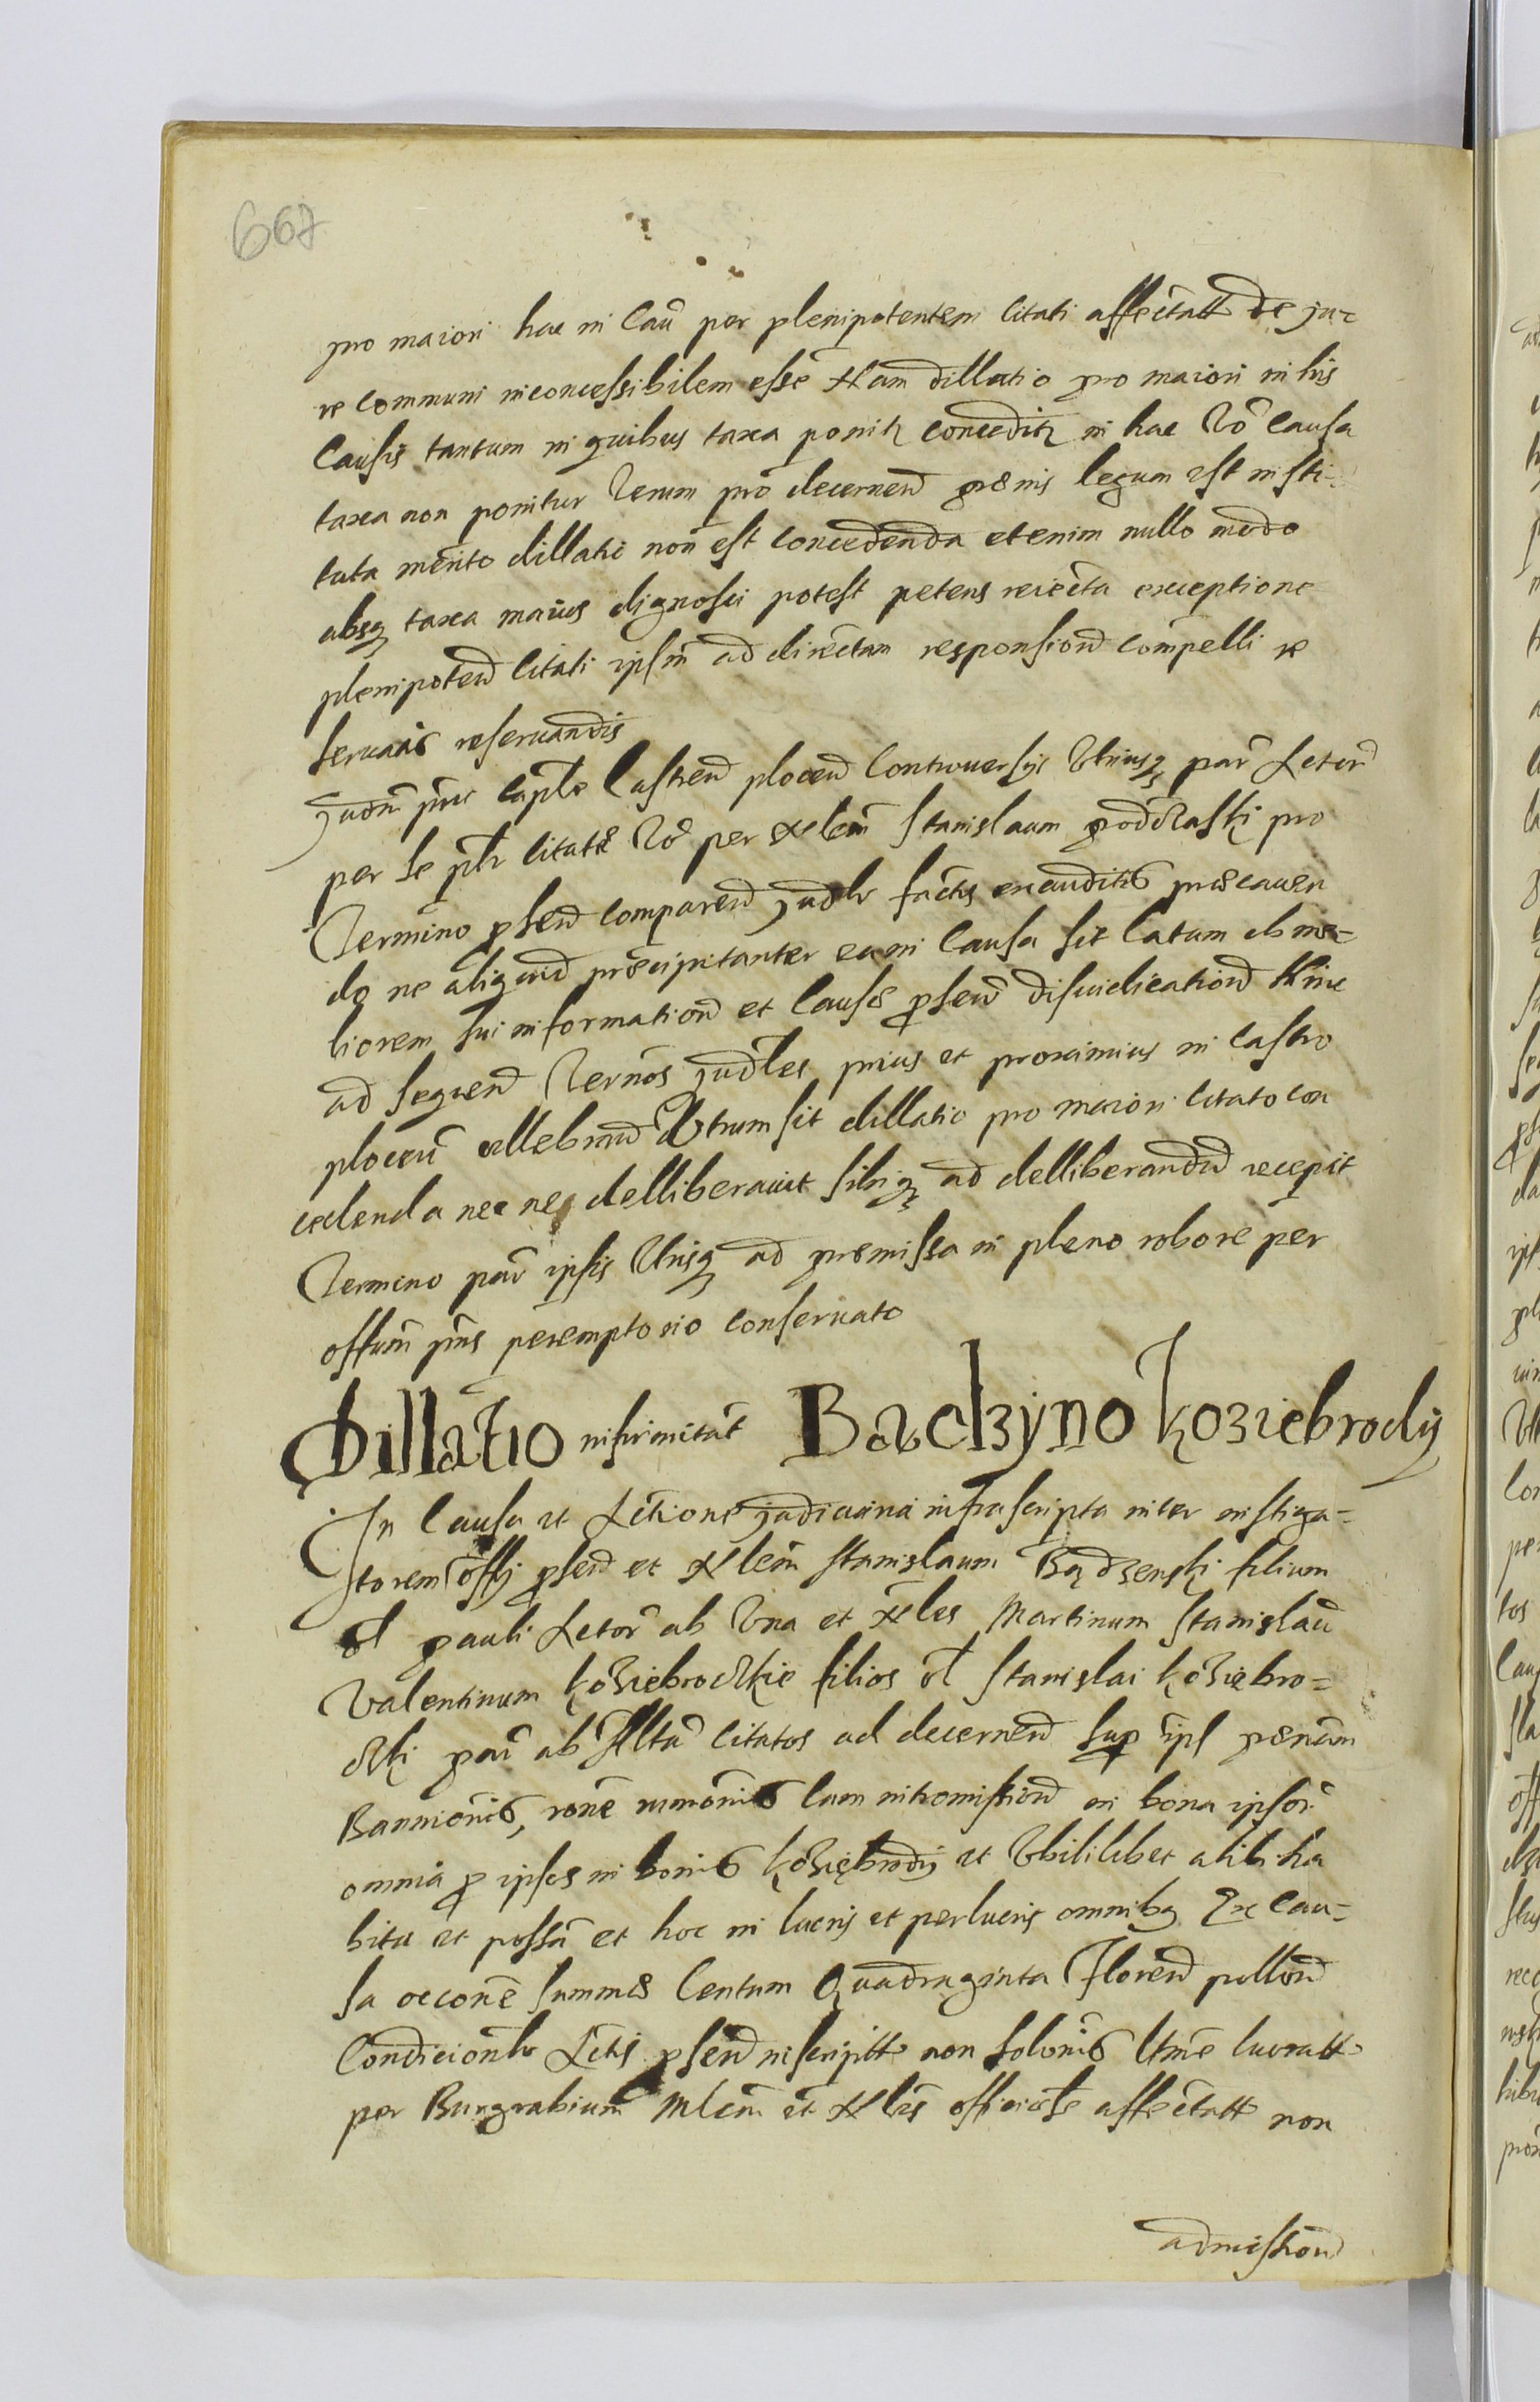 667
pro maiori hac in Cau per plenipotentem Citati affectatt de ju-
re communi inconcessibilem esse Nam dillatio pro maiori in his
Causis tantum in quibus taxa ponitz conceditz in hac Vo Causa
taxa non ponitur Verum pro decernend poenis legum est insti-
tuta merito dillatio non est concedenda etenim nullo modo
absq taxa maius dignosci potest petens reiecta exceptione
plenipotend Citati ipsm ad directam responsiond compelli re
seruais reseruandis
Judm pns Caple Castren plocen Controuersys Utriusq par Actor
per se pntr Citate Vo per Nlem Stanislaum podczaski pro
Termino psend comparend Judlr factis exauditis praecauen
do ne aliquid praecipitanter ea in Causa sit latum ob me-
liorem sui informationd et Causae psend disiudicationd hinc
ad sequend Ternos Judles prius et proximius in Castro
plocen cellebrand Utrum sit dillatio pro maiori Citato con
cedenda nec ne delliberauit sibiq ad delliberandu recepit
Termino par ipsis Utrisq ad praemissa in pleno robore per
offum pns peremptorio conseruato
Dillatio infirmitat Baczyno Koziebrody
In Causa et Actione judiciaria infrascripta inter instiga-
torem offy psend et Nlem Stanislaum Bądzenski filium
ol pauli Actor ab Una et Nles Martinum Stanislau
Valentinum Koziebrodzkie filios ol Stanislai Koziebro-
dzki par ab Alta Citatos ad decernend sup ips poenam
Bannionis, rone rumonis Cum intromissiond in bona ipsor
omnia p ipsos in bonis Koziebrody et Ubililibet alibi ha
bita et possa et hoc in lucris et perlucris omnibq Ex Cau-
sa occone summae Centum Quadraginta Florend pollond
Condicionlr Actis psend inscriptt non solonis Utme lucratt
per Burgrabium Mlem et Nles officiose affectatt non
admissiond